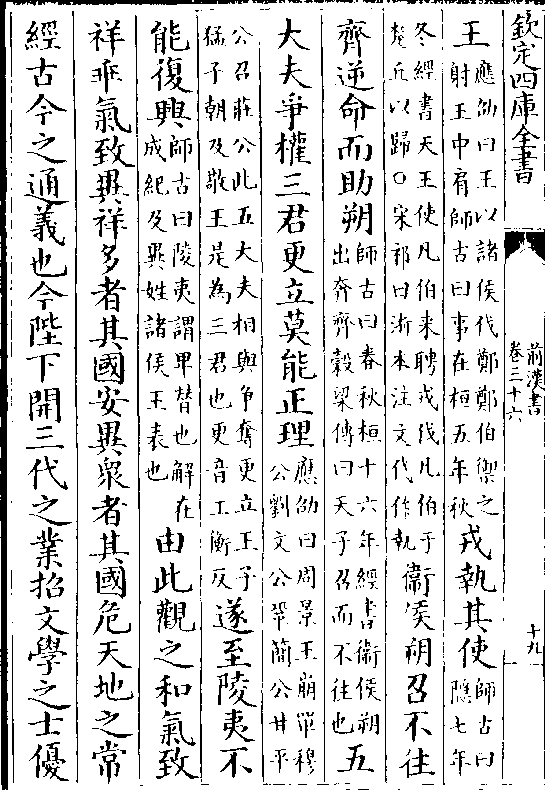 欽定四庫全書
前漢書
卷三十六
十九
王應劭曰王以諸侯伐鄭鄭伯禦之射王中肩師古曰事在桓五年秋戎執其使師古曰隱七年
冬經書天王使凡伯来聘戎伐凡伯于楚丘以歸○宋祁曰浙本注文伐作執衞侯朔召不往
齊逆命而助朔師古曰春秋桓十六年經書衞侯朔出奔齊穀梁傳曰天子召而不往也五
大夫爭權三君更立莫能正理應劭曰周景王崩單穆公劉文公鞏簡公甘平
公召莊公此五大夫相與争奪更立王子猛子朝及敬王是為三君也更音工衡反遂至陵夷不
能復興師古曰陵夷謂卑替也解在成紀及異姓諸侯王表也由此觀之和氣致
祥乖氣致異祥多者其國安異衆者其國危天地之常
經古今之通義也今陛下開三代之業招文學之士優